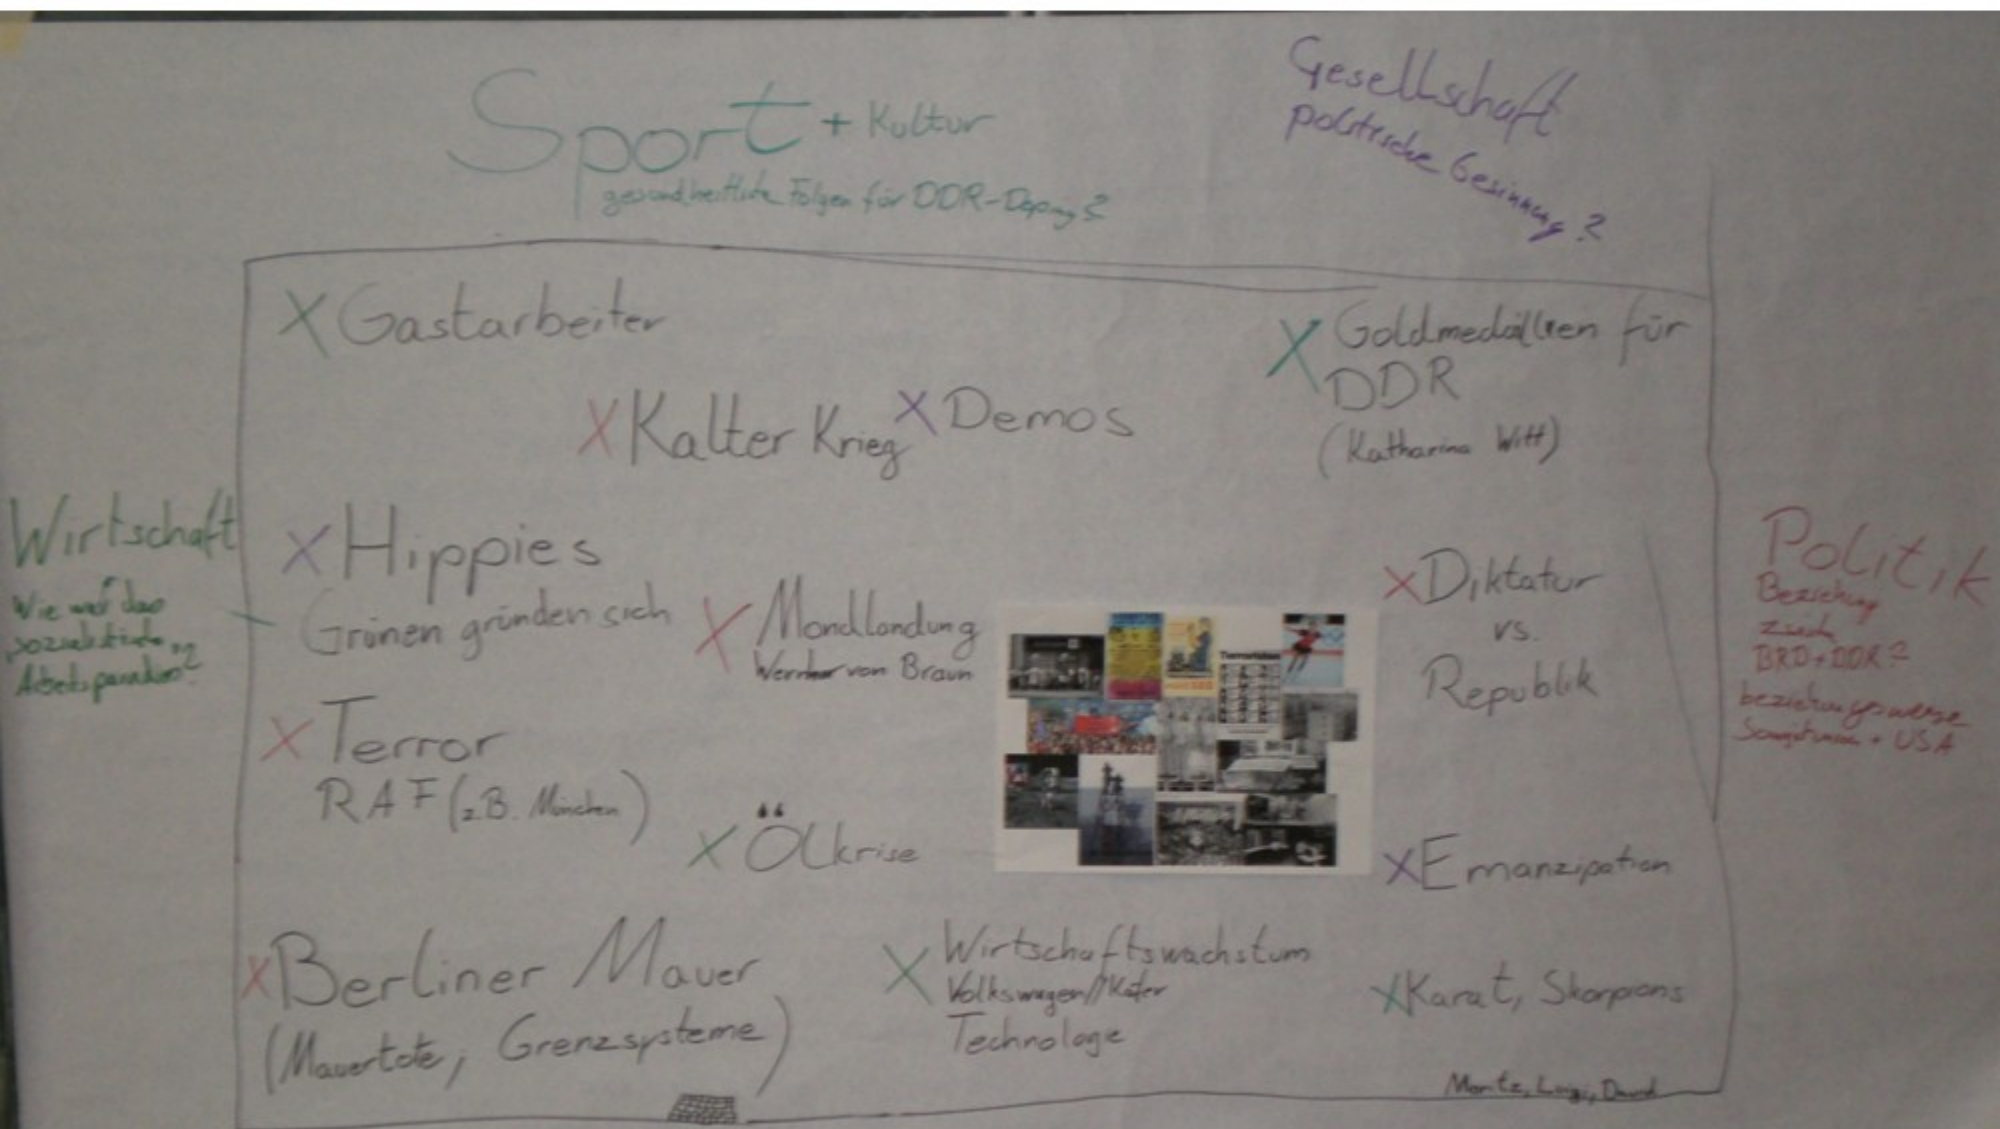 Sport + Kultur
gesundheitliche Folgen für DDR-Doping?
Gesellschaft
politische Gesinnung?
X Gastarbeiter
X Goldmedaillen für
DDR
(Katharina Witt)
X Kalter Krieg
X Demos
Wirtschaft
Wie war das
sozialistische
X Hippies
Grünen gründen sich
X Mondlandung
Wernher von Braun
X Diktatur
vs.
Republik
Politik
Beziehung
BRD + DDR?
beziehungsweise
+ USA
X Terror
RAF (z.B. München)
X Ölkrise
X Emanzipation
X Berliner Mauer
(Mauertote, Grenzsysteme)
X Wirtschaftswachstum
Volkswagen//Käfer
Technologe
X Karat, Skorpions
Moritz, Luigi, David